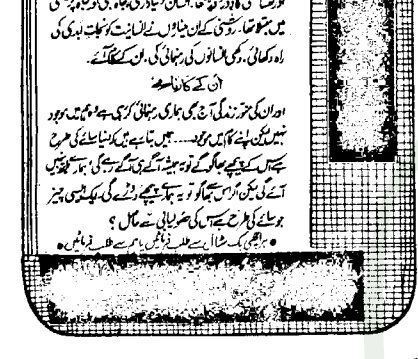 میں مبتلا تھا۔ روشنی کے ان میناروں نے انسانیت کو نجات ابدی کی
راہ دکھائی۔ دکھی انسانوں کی رہنمائی کی۔ ان کے
ان کے کارنامے
اور ان کی طرز زندگی آج بھی ہماری رہنمائی کر رہی ہے وہ ہم میں موجود
نہیں لیکن اپنے کام میں موجود ۔۔۔۔ ہمیں بتا ہے ہیں کہ دنیا سائے کی طرح
ہے اس کے پیچھے بھاگو گے تو یہ ہمیشہ آگے ہی آگے رہے گی، ہاتھ نہیں
آئے گی لیکن اگر اس سے بھاگو تو یہ ہمارے پیچھے دوڑے گی۔ ایک ایسی چیز
جو سائے کی طرح ہے اس کی حصولیابی سے حاصل ؟
● ہر اچھے بک سٹال سے طلب فرمائیں یا ہم سے طلب فرمائیں ●